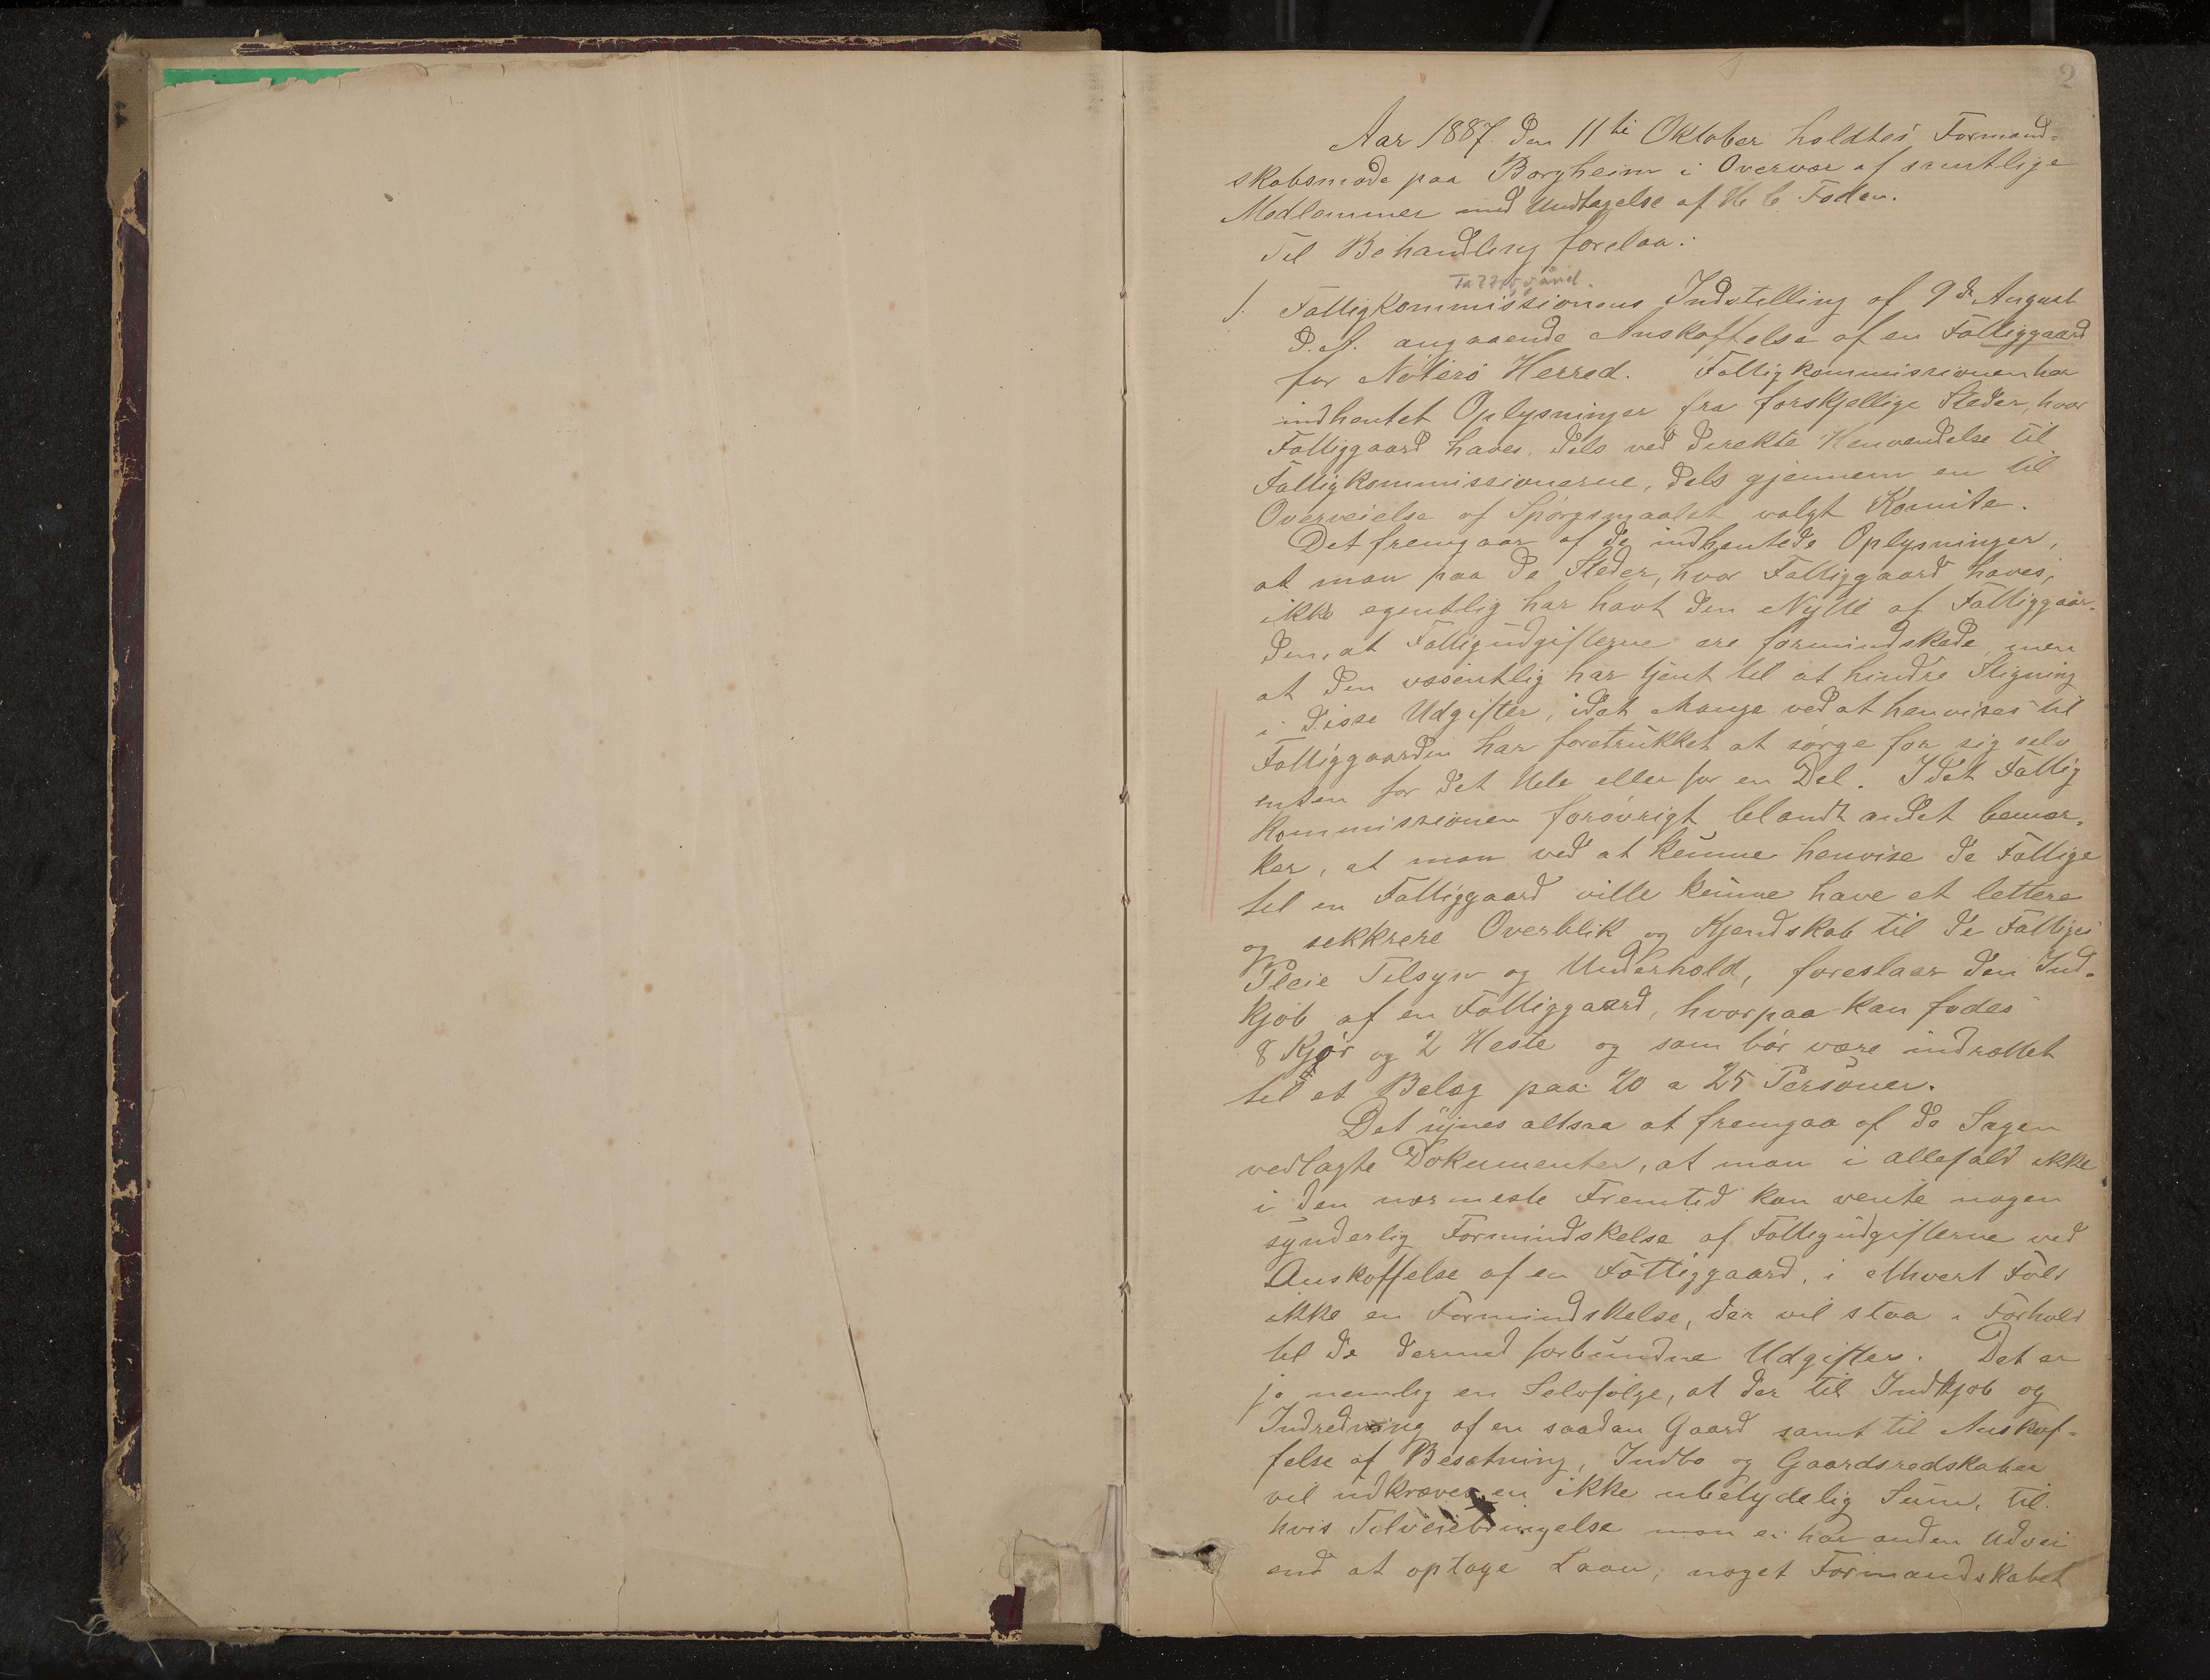 2
Aar 1887 den 11te Oktober holdtes Formand-
skabsmøde paa Borgheim i Overvær af samtlige
Medlemmer med Undtagelse af H. C. Foden.
Til Behandling forelaa:
1. Fattigkommissionens Indstilling af 9de August
d. A. angaaende Anskaffelse af en Fattiggaard
for Nøterø Herred. Fattigkommissionen har
indhentet Oplysninger fra forskjellige Steder, hvor
Fattiggaard haves, dels ved direkte Henvendelse til
Fattigkommissionerne, dels gjennem en til
Overveielse af Spørgsmaalet valgt Komite.
Det fremgaar af de indhentede Oplysninger,
at man paa de Steder, hvor Fattiggaard haves,
ikke egentlig har havt den Nytte af Fattiggaar-
den, at Fattigudgifterne ere formindskede, men
at den væsentlig har tjent til at hindre Stigning
i disse Udgifter, idet Mange ved at henvises til
Fattiggaarden har foretrukket at sørge for sig selv
enten for det Hele eller for en Del. Idet Fattig
kommissionen forøvrigt blandt andet bemær-
ker, at man ved at kunne henvise de Fattige
til en Fattiggaard ville kunne have et lettere
og sekkrere Overblik og Kjendskab til de Fattiges
Pleie Tilsyn og Underhold, foreslaar den Ind-
kjøb af en Fattiggaard, hvorpaa kan fødes
8 Kjør og 2 Heste og som bør være indrettet
til et Belæg paa 20 a 25 Personer.
Det synes altsaa at fremgaa af de Sagen
vedlagte Dokumenter, at man i allefald ikke
i den nærmeste Fremtid kan vente nogen
synderlig Formindskelse af Fattigudgifterne ved
Anskaffelse af en Fattiggaard, i ethvert Fald
ikke en Formindskelse, der vil staa i Forhold
til de dermed forbundne Udgifter. Det er
jo nemlig en Selvfølge, at der til Indkjøb og
Indredning af en saadan Gaard samt til Anskaf-
felse af Besætning, Indbo og Gaardsredskaber
vil udkræves en ikke ubetydelig Sum, til
hvis Tilveiebringelse man ei har anden Udvei
end at optage Laan, noget Formandskabet